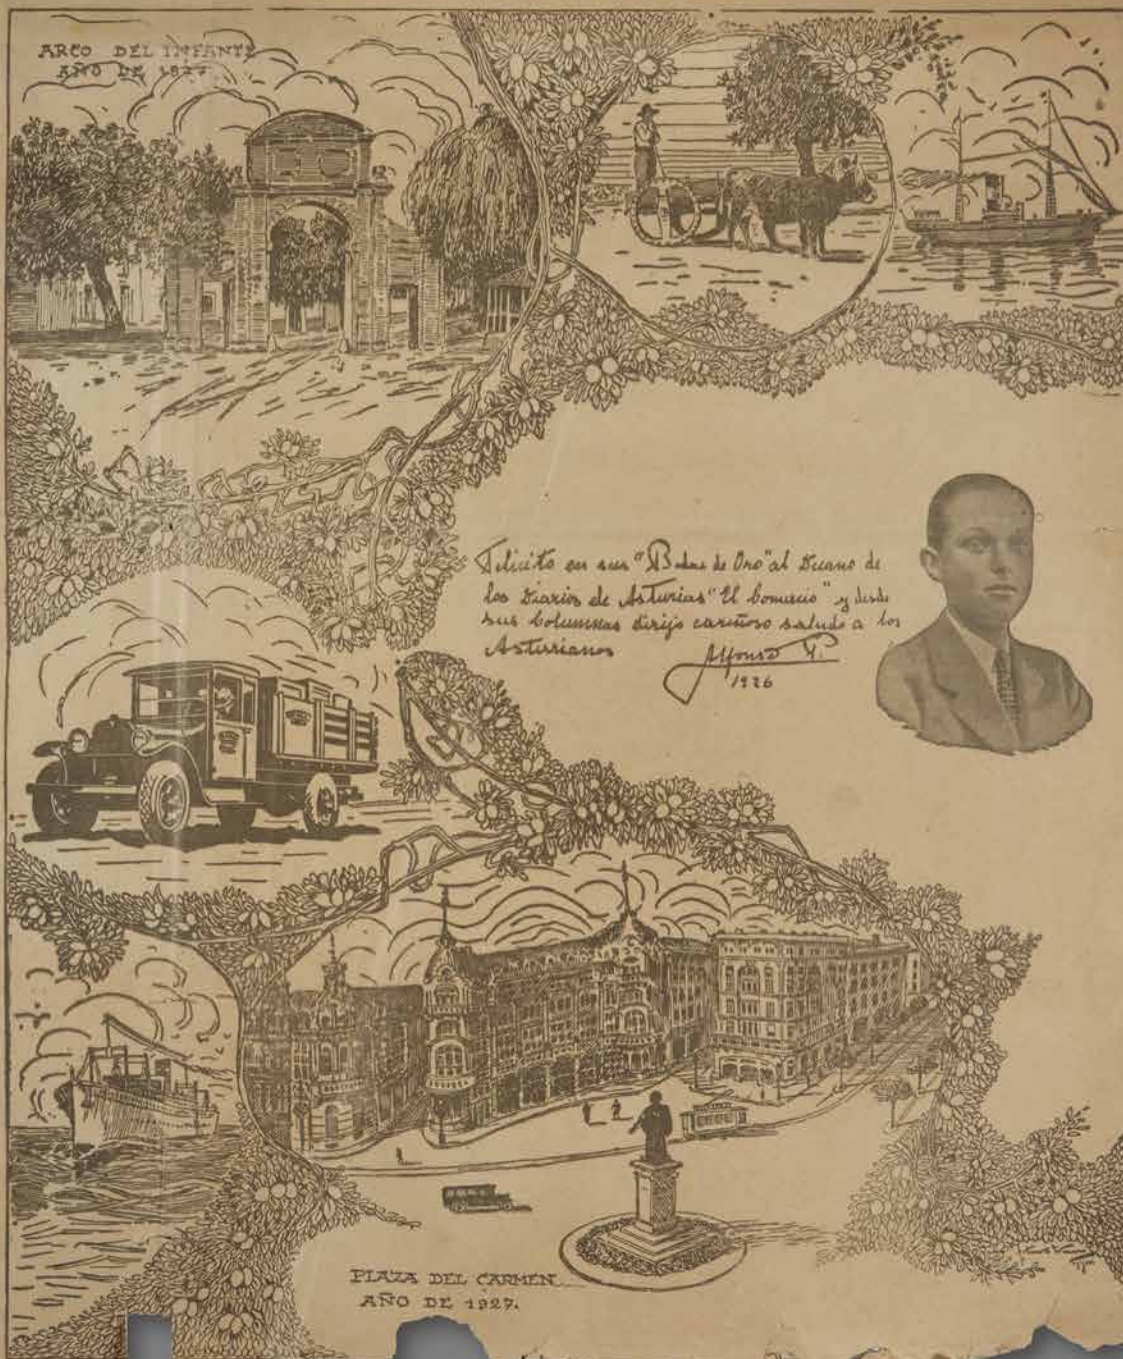 ARCO DEL INFANTE
AÑO DE 1927.
Felicito en sus "Bodas de Oro" al Decano de
los Diarios de Asturias "El Comercio" y desde
sus Columnas dirijo cariñoso saludo a los
Asturianos
Alfonso P.
1926
PLAZA DEL CARMEN
AÑO DE 1927.